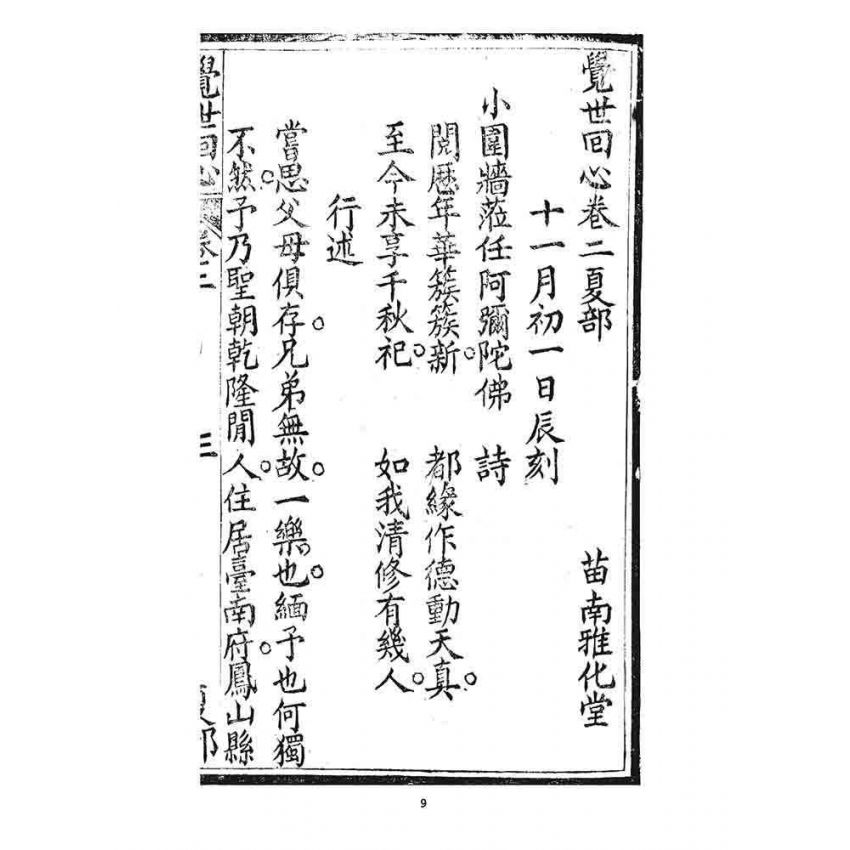 覺世回心卷二夏部 苗南雅化堂
十一月初一日辰刻
小圍牆蒞任阿彌陀佛 詩
閱歷年華簇簇新。 都緣作德動天真。
至今未享千秋祀。 如我清修有幾人。
行述
嘗思父母俱存。兄弟無故。一樂也。緬予也何獨
不然。予乃聖朝乾隆間人。住居臺南府。鳳山縣
覺世回心 卷二 三 夏部
9